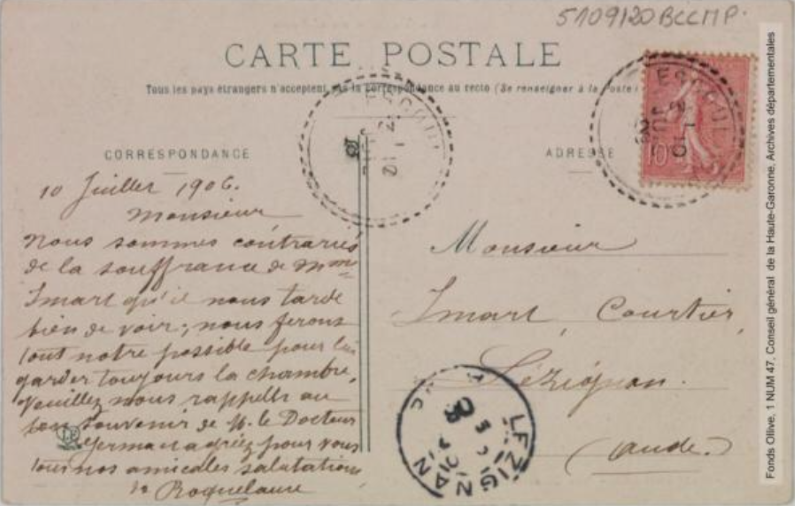 5109120BCCMP.
CARTE POSTALE
Tous les pays étrangers n'acceptent pas la correspondance au recto (Se renseigner à la Poste)
CORRESPONDANCE
10 Juillet 1906.
Monsieur
Nous sommes contrariés
de la souffrance de Mme
Imart qu'il nous tarde
bien de voir; nous ferons
tout notre possible pour lui
garder toujours la chambre.
Veuillez nous rappeler au
bon souvenir de M. le Docteur
German agréez pour vous
tous nos amicales salutations
Roquelaure
ADRESSE
Monsieur
Imart, Courtier,
Lézignan.
(Aude.)
LEZIGNAN
10
Fonds Ollive, 1 NUM 47, Conseil général de la Haute-Garonne, Archives départementales